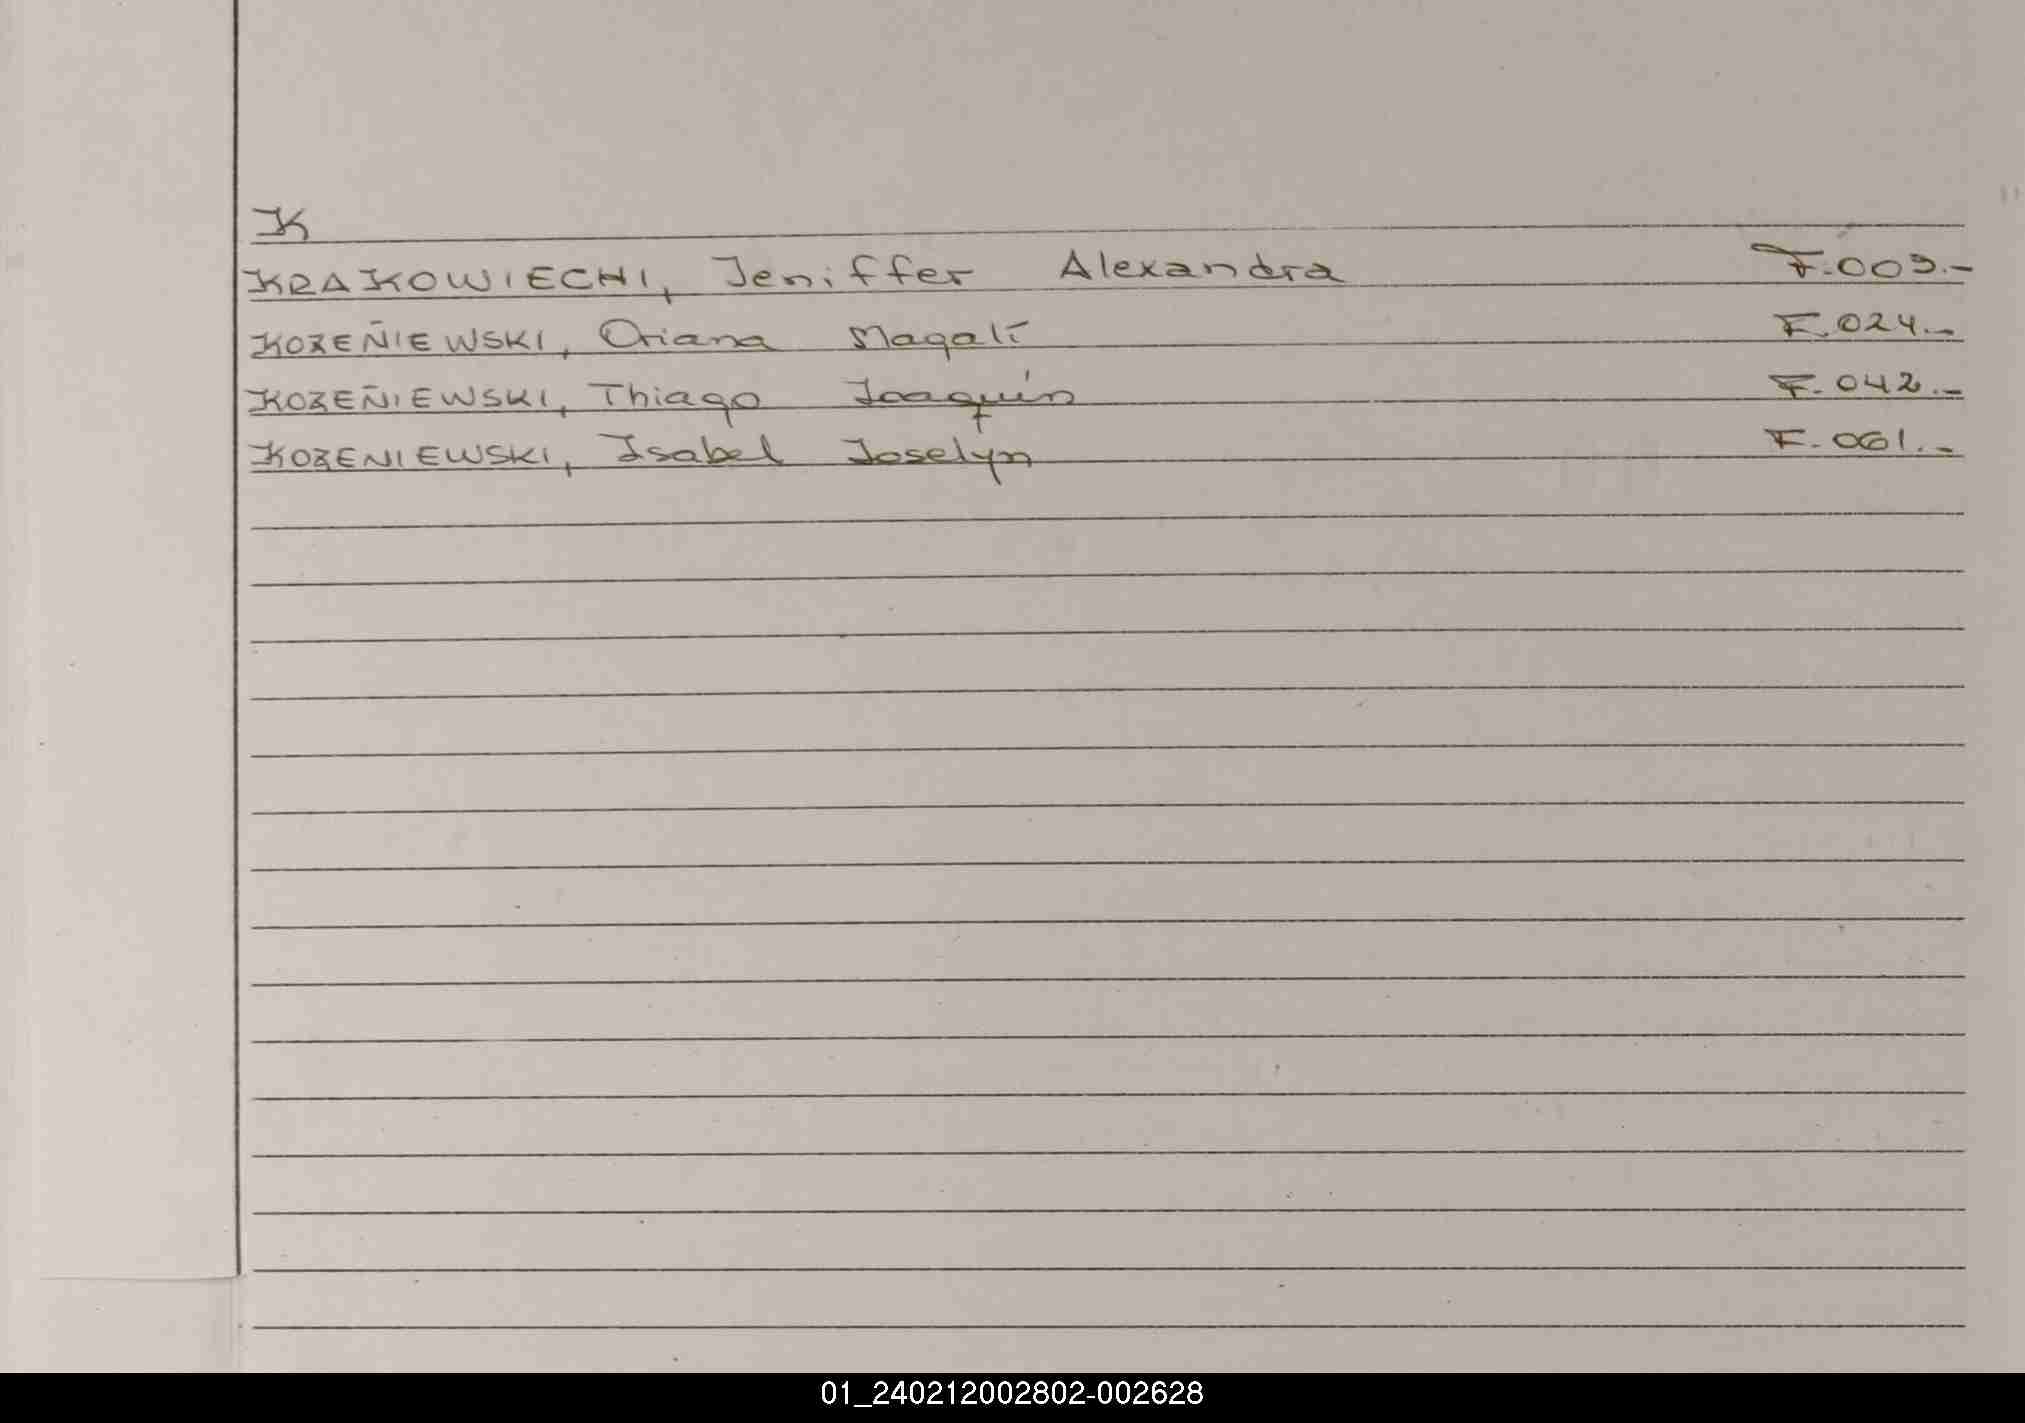 K
KRAKOWIECHI, Jeniffer Alexandra F.009.-
KOZEÑIEWSKI, Oriana Magalí F.024.-
KOZEÑIEWSKI, Thiago Joaquín F.042.-
KOZENIEWSKI, Isabel Joselyn F.061.-
01_240212002802-002628